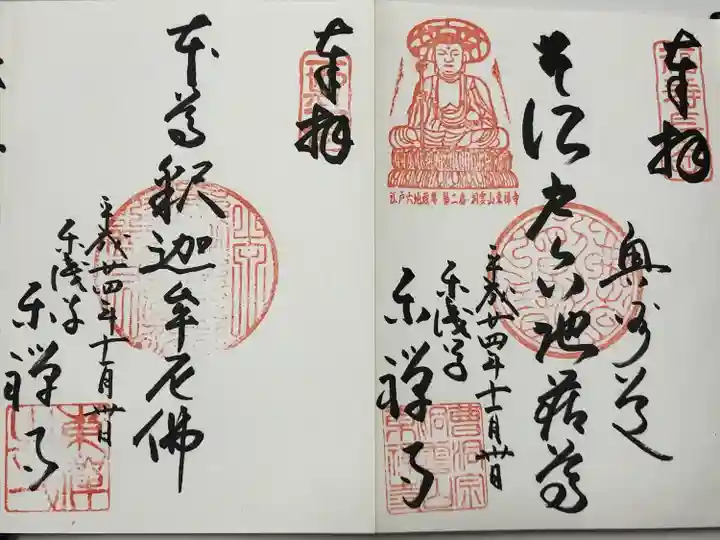 奉拝
奥州道
地蔵尊
江戸六地蔵尊 第二番 洞雲山東禅寺
平成廿四年十一月卅日
東浅草
東禅寺
曹洞宗
洞雲山
東禅寺
奉拝
本尊 釈迦牟尼佛
平成廿四年十一月卅日
東浅草
東禅寺